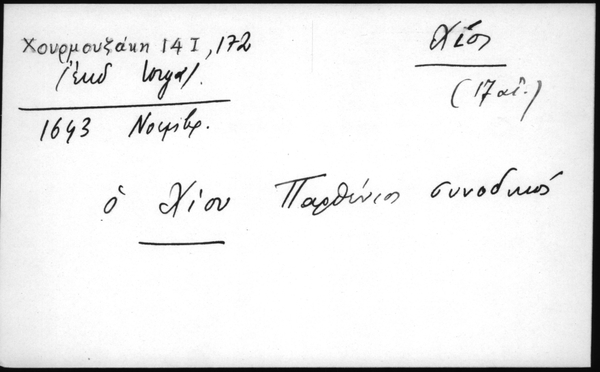 Χουρμουζάκη 14 Ι, 172
Χίος
(ἐκδ Ιοργα).
(17 αἰ.)
1643 Νοεμβρ.
ὁ Χίου Παρθένιος συνοδικός